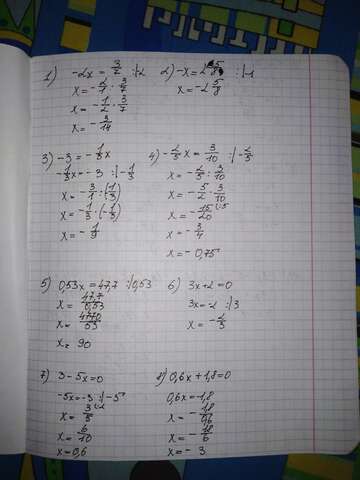 1) -2x = 3/7 :|2
x = -2/1 · 3/7
x = -1/2 · 3/7
x = -3/14
2) -x = 2 5/8 :|-1
x = -2 5/8
3) -3 = -1/3x
-1/3x = -3 :|-1/3
x = -3/1 : (1/3)
x = -1/3 · (-1/3)
x = -1/9
4) -2/5 x = 3/10 :|-2/5
x = -2/5 : 3/10
x = -5/2 · 3/10
x = -15/20 :5
x = -3/4
x = -0,75
5) 0,53x = 47,7 :|0,53
x = 47,7/0,53
x = 4770/53
x = 90
6) 3x+2=0
3x=-2 :|3
x = -2/3
7) 3-5x=0
-5x=-3 :|-5
x = 3/5 ·2
x = 6/10
x=0,6
8) 0,6x+1,8=0
0,6x=-1,8
x = -1,8/0,6
x = -18/6
x = -3